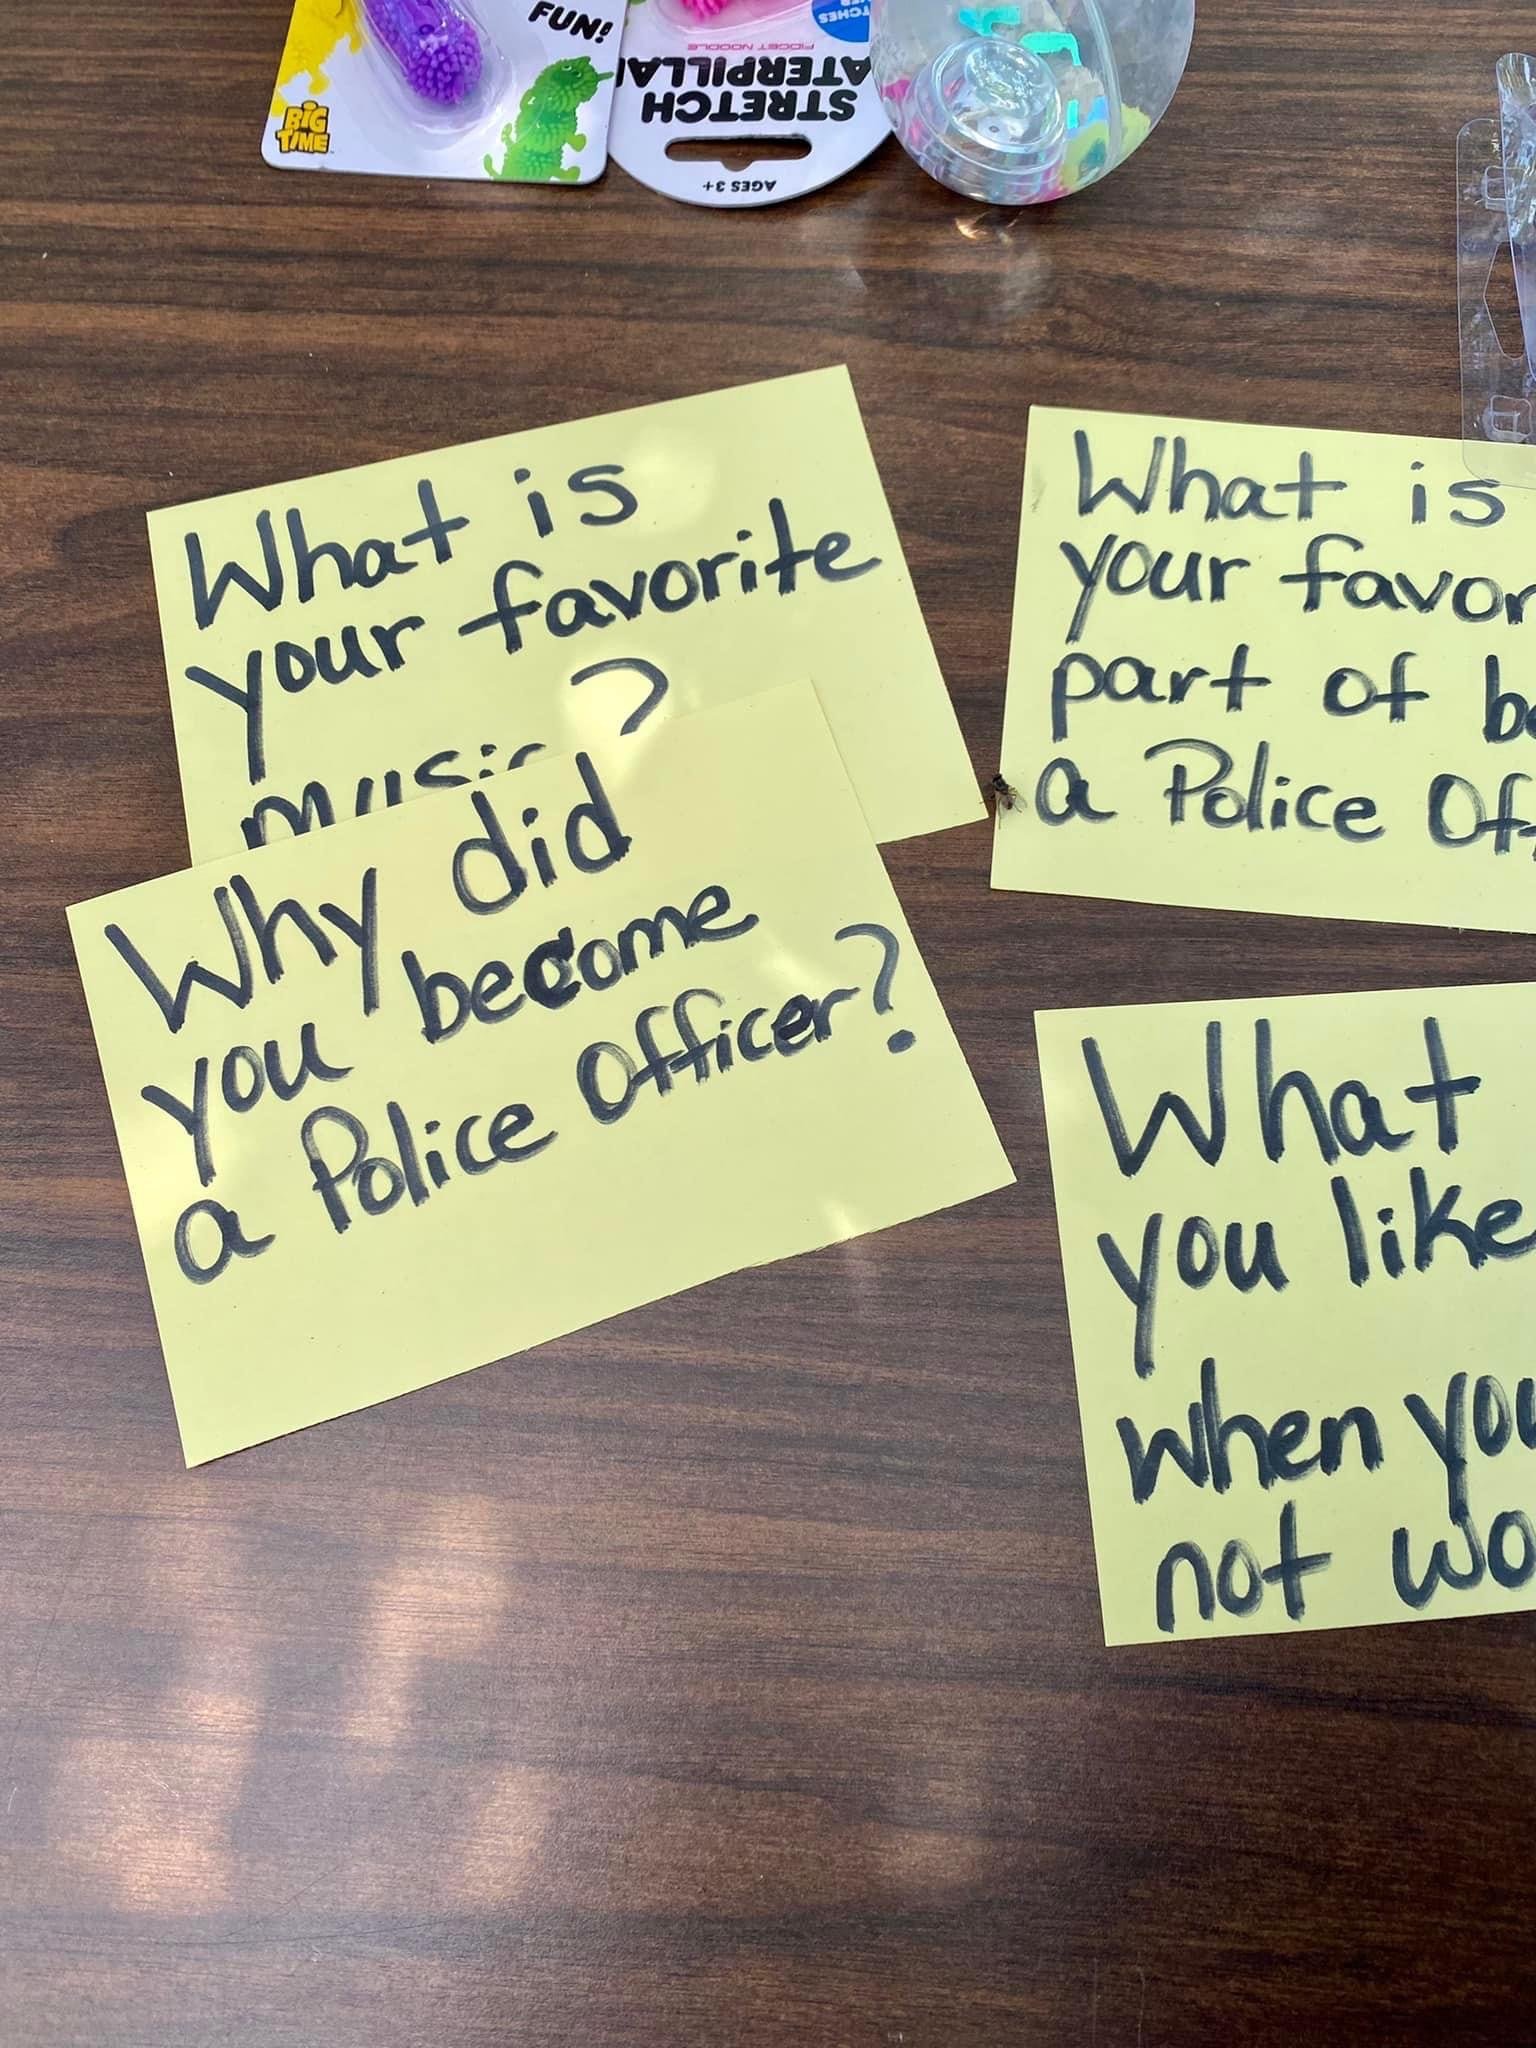 FUN!
BIG
TIME
AGES 3+
STRETCH
FIDGET NOODLE
What is
your favorite
music?
Why did
you become
a Police Officer?
What is
your
part of
a Police
What
you like
when you
not